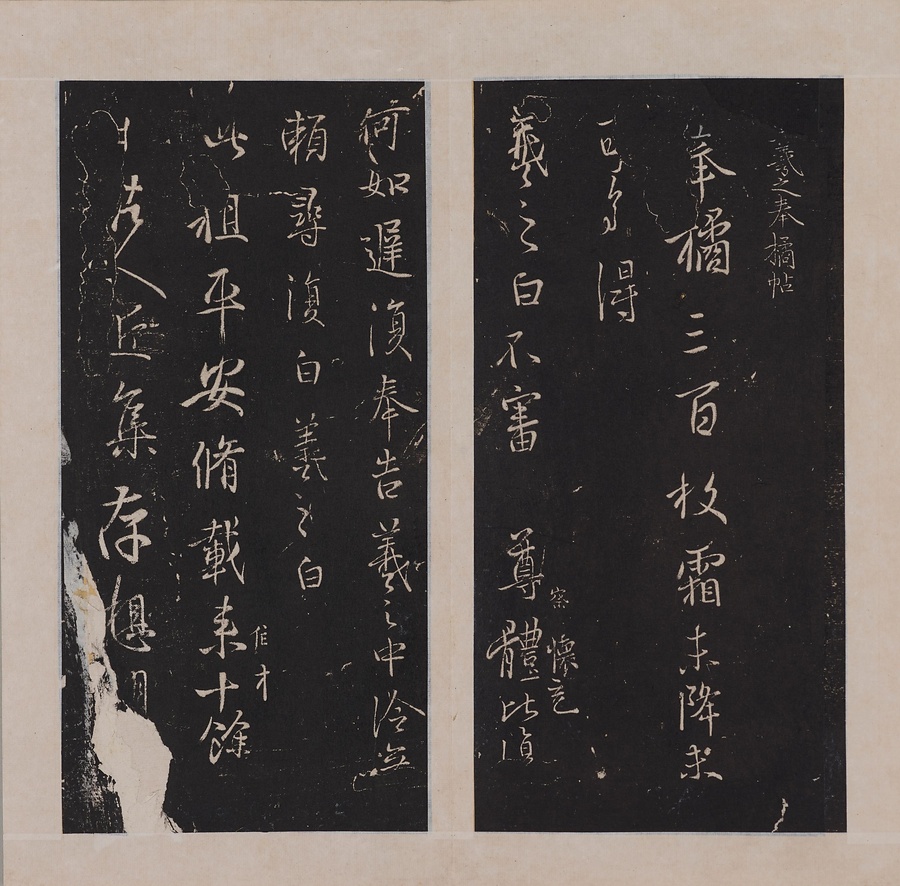 羲之奉橘帖
奉橘三百枚霜未降未
可多得
羲之白不審尊體比復
察
懷充
何如遲復奉告羲之中冷無
賴尋復白羲之白
此粗平安脩載來十餘
日諸人近集存想明